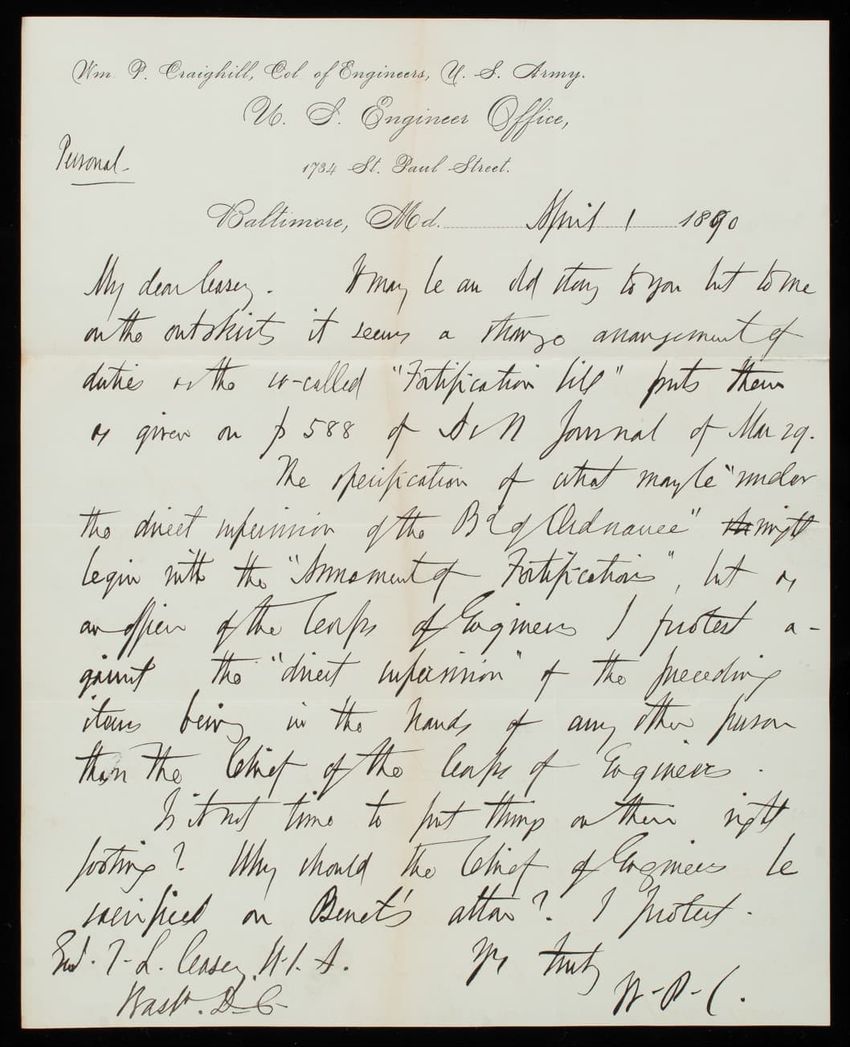 Wm. P. Craighill, Col. of Engineers, U. S. Army.
U. S. Engineer Office,
Personal
1734 St. Paul Street.
Baltimore, Md. April 1 1890
My dear Casey. It may be an old story to you but to me
on the outskirts it seems a strange arrangement of
duties as the so-called "Fortification bill" puts them
as given on p 588 of A & N Journal of Mar 29.
The specification of what may be "under
the direct supervision of the Bd of Ordnance" might
begin with the "Armament of Fortifications", but as
an officer of the Corps of Engineers I protest a-
gainst the "direct supervision" of the preceding
items being in the hands of any other person
than the Chief of the Corps of Engineers.
Is it not time to put things on their right
footing? Why should the Chief of Engineers be
sacrificed on Benet's altar? I protest.
Genl. T. L. Casey, U.S.A. Yrs truly
Washn. D.C. W.P.C.